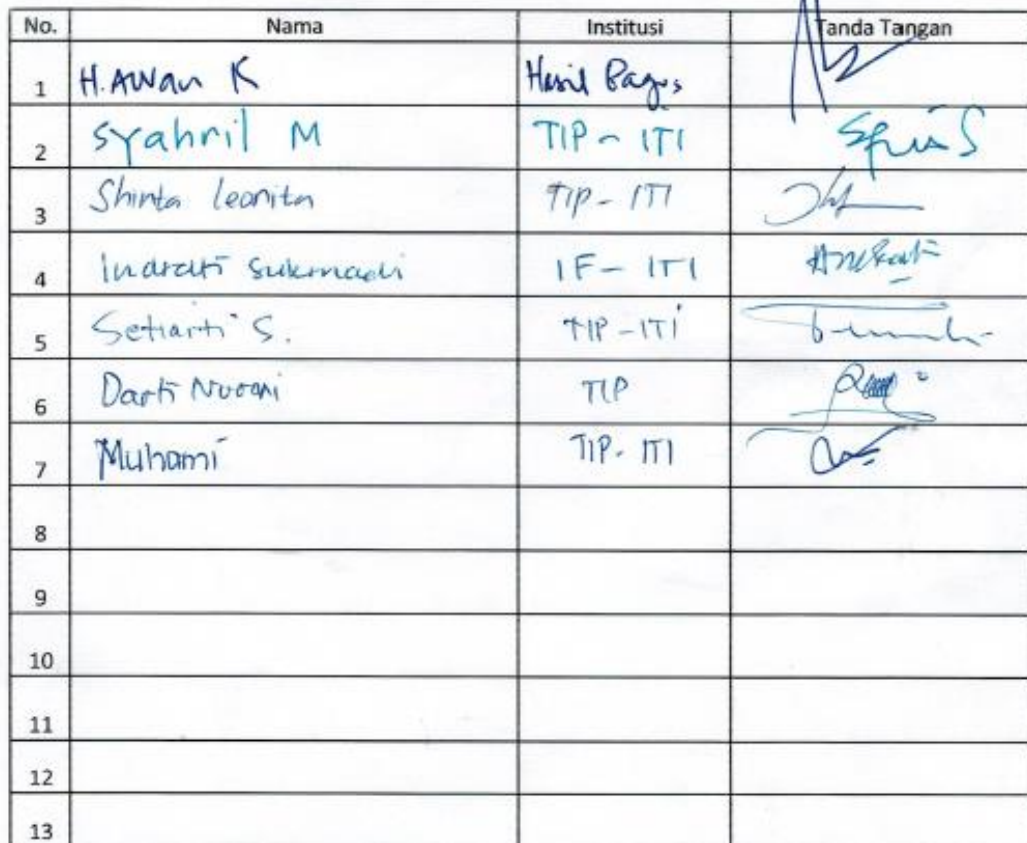 No. Nama Institusi Tanda Tangan
1 H. Awan K Hasil Bagus
2 Syahril M TIP - ITI
3 Shinta Leonita TIP - ITI
4 Indrati Sukmadi IF - ITI
5 Setiarti S. TIP - ITI
6 Darti Nurani TIP
7 Muhami TIP - ITI
8
9
10
11
12
13